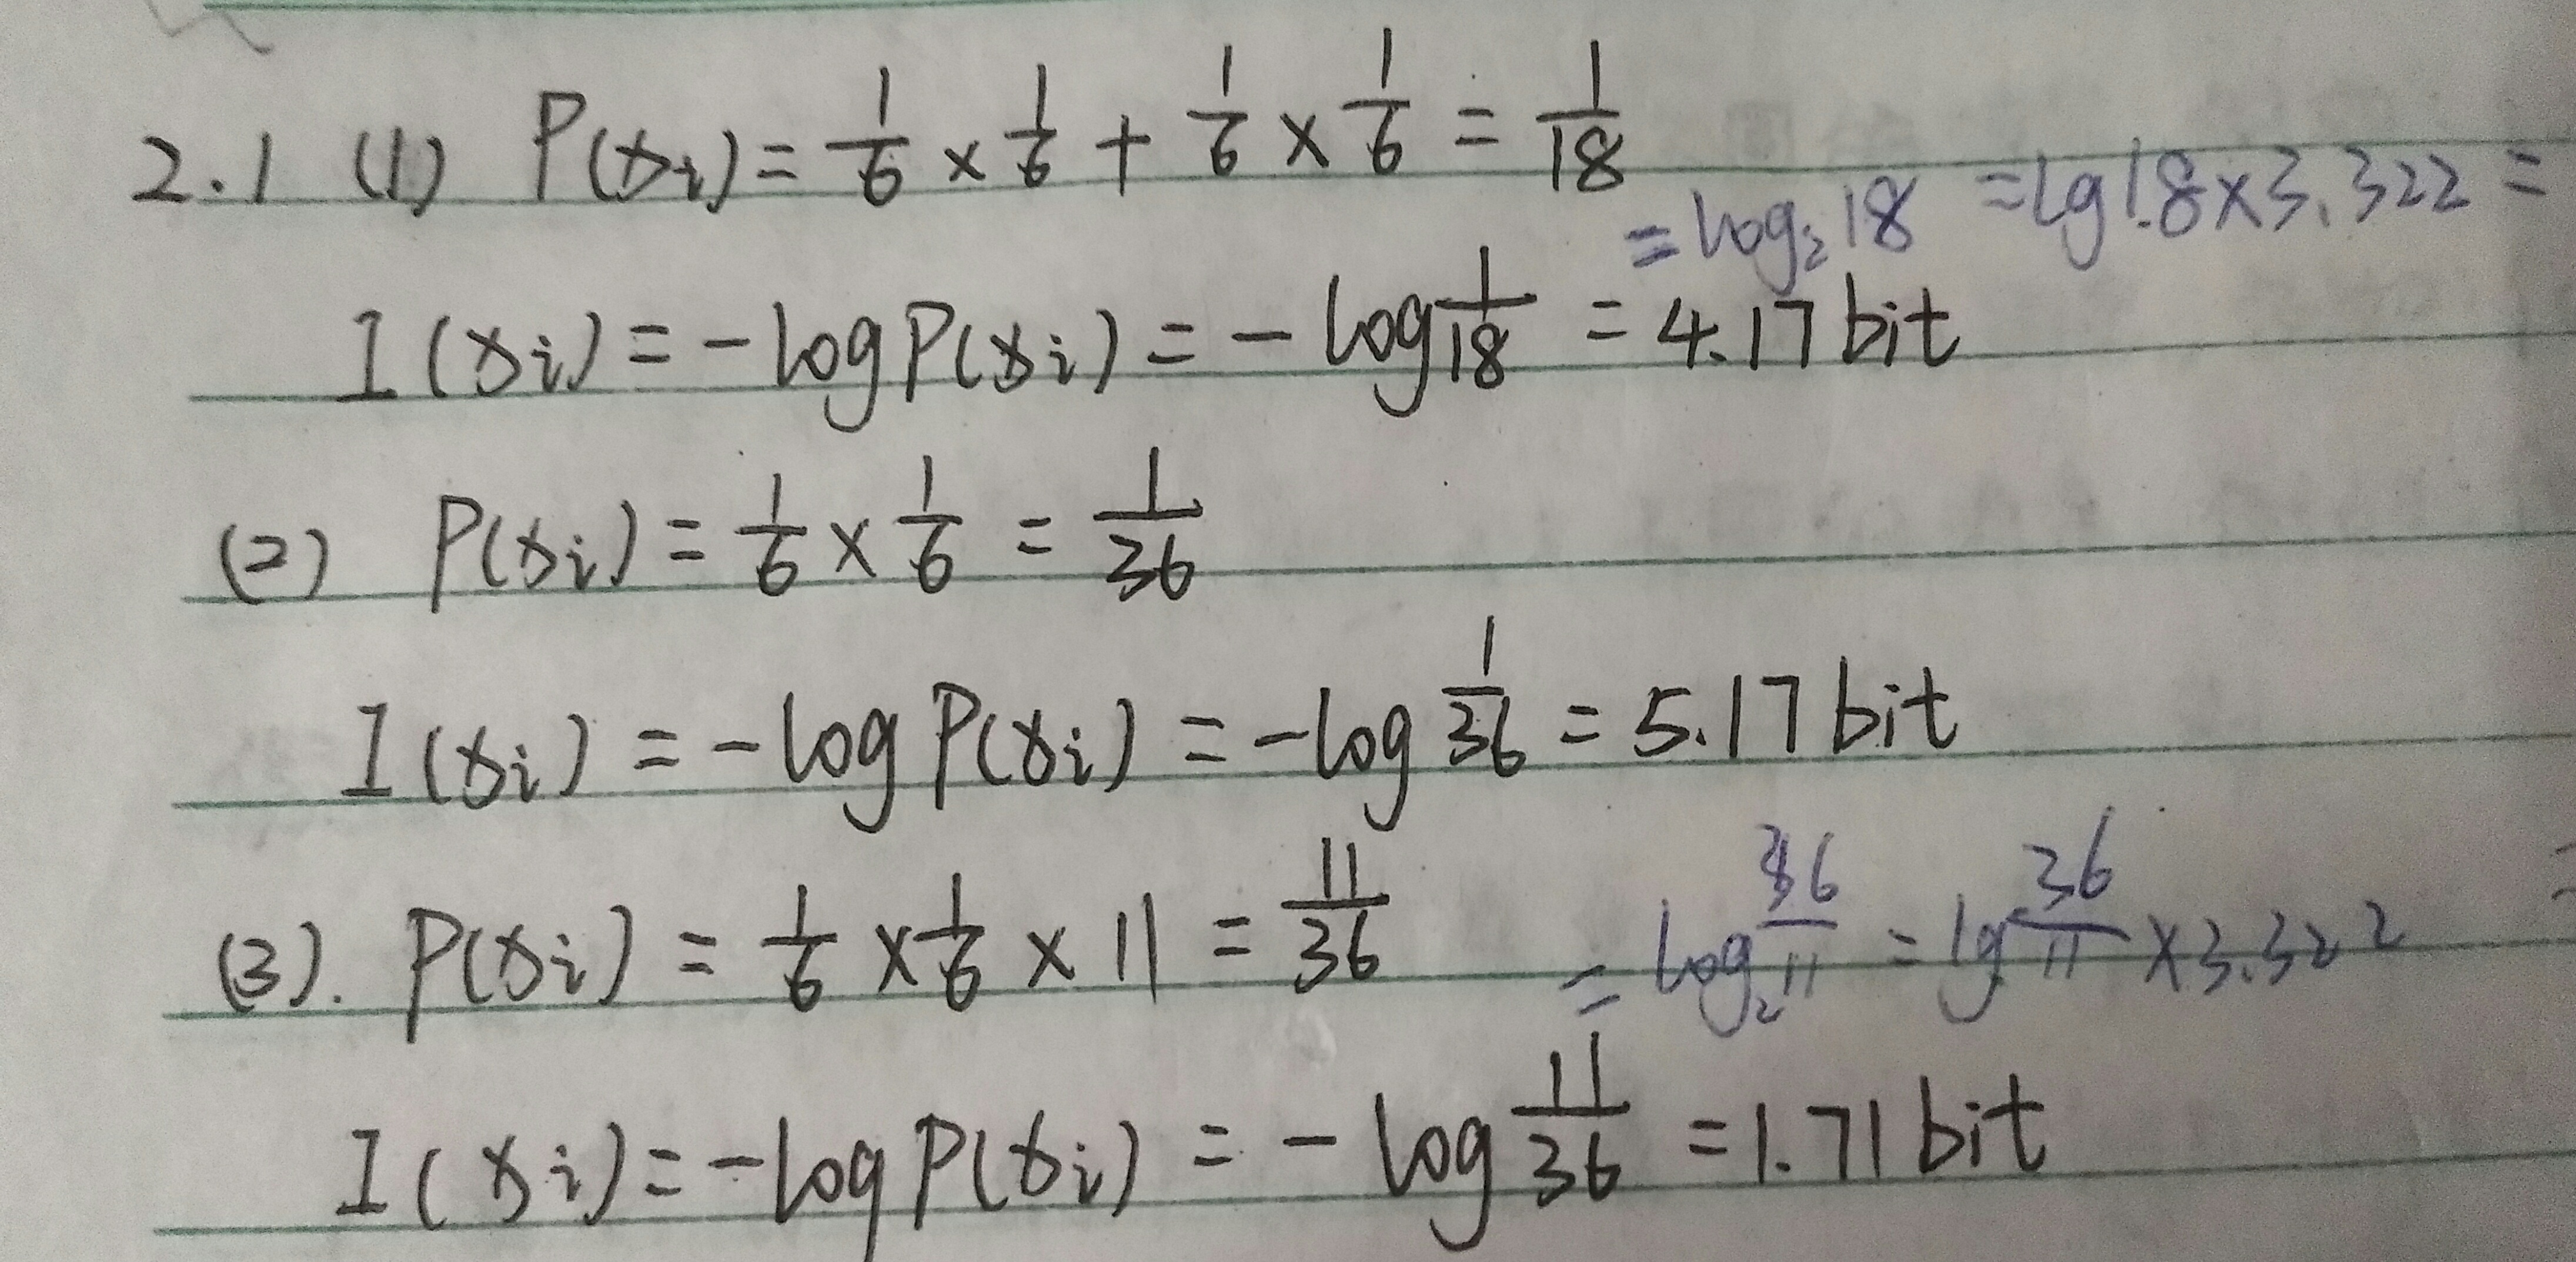 2.1 (1) P(xi) = 1/6 × 1/6 + 1/6 × 1/6 = 1/18
= log₂ 18 = lg 18 × 3.322 =
I(xi) = -log P(xi) = - log 1/18 = 4.17 bit
(2) P(xi) = 1/6 × 1/6 = 1/36
I(xi) = -log P(xi) = -log 1/36 = 5.17 bit
(3). P(xi) = 1/6 × 1/6 × 11 = 11/36
= log₂ 36/11 = lg 36/11 × 3.322 =
I(xi) = -log P(xi) = - log 11/36 = 1.71 bit